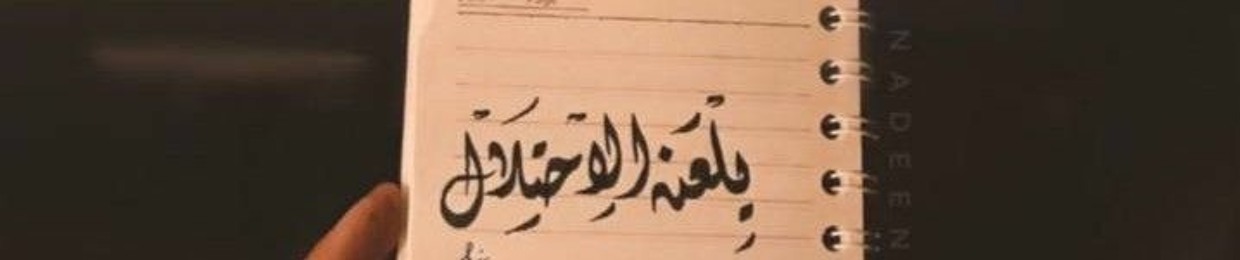 يلعن الاحتلال
NADEEN